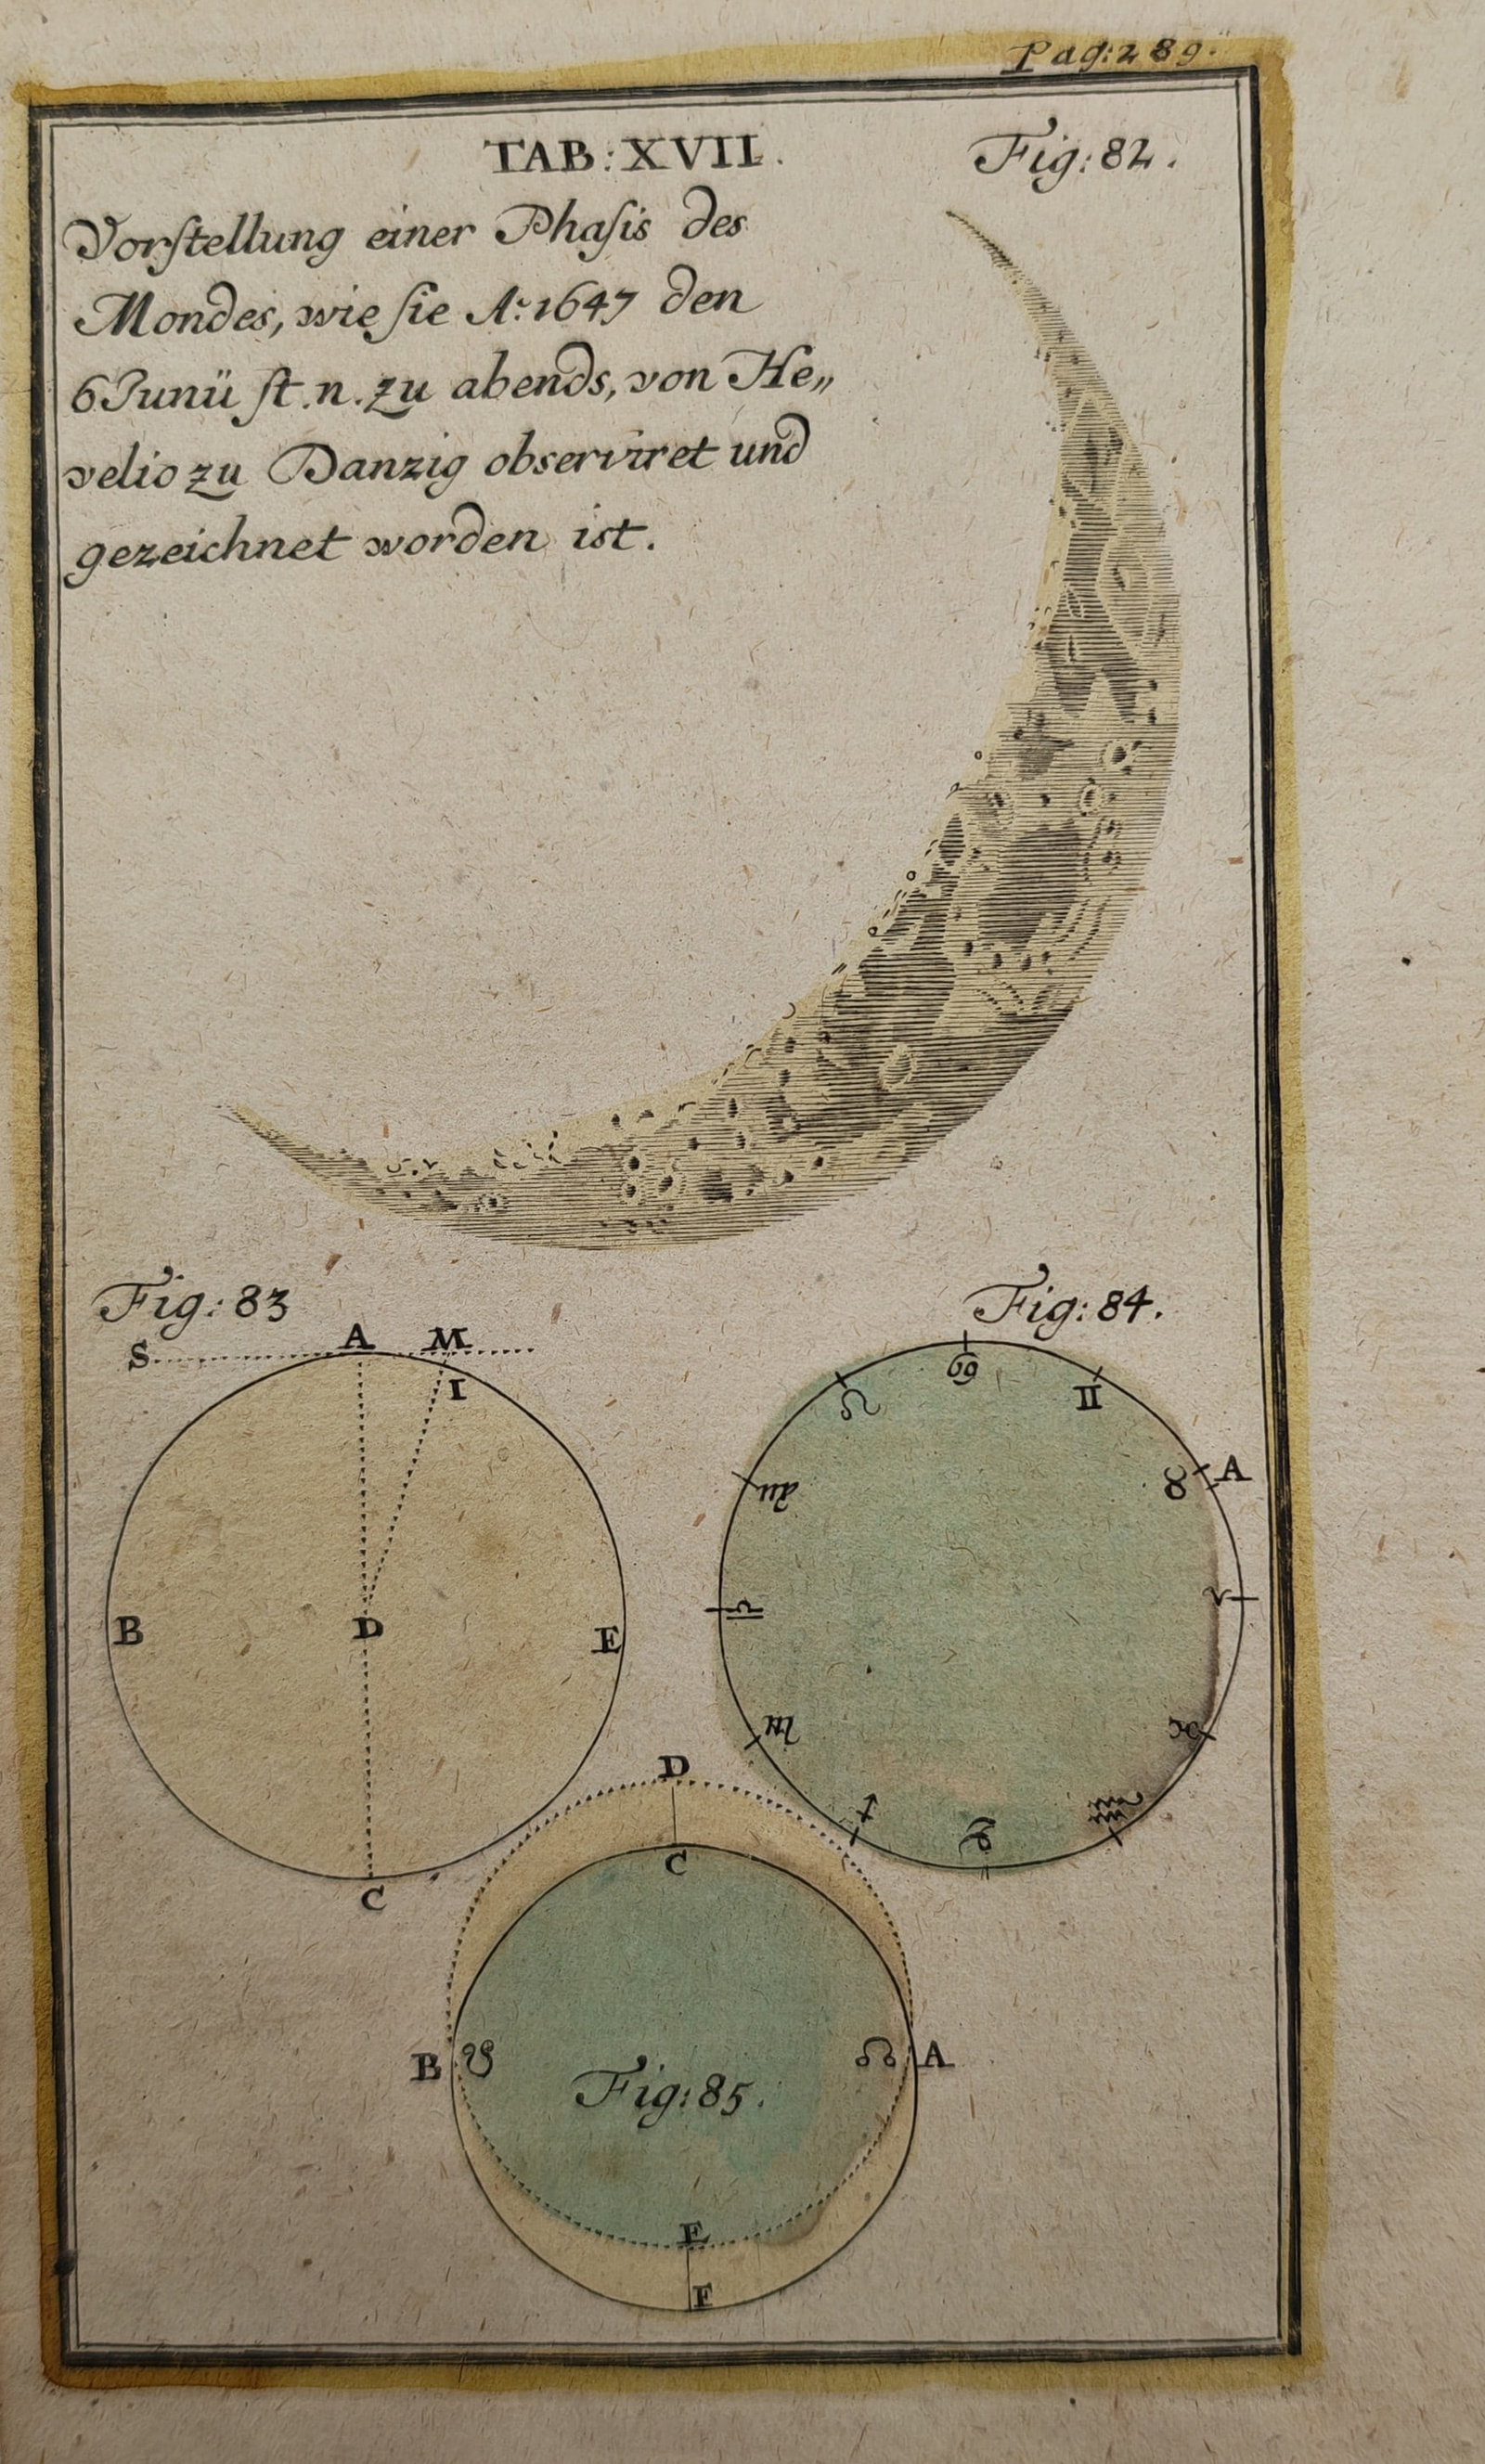 Pag: 289.
TAB: XVII.
Fig: 82.
Vorſtellung einer Phaſis des
Mondes, wie ſie A: 1647 den
6 Junii ſt. n. zu abends, von He„
velio zu Danzig observiret und
gezeichnet worden ist.
Fig: 83
S A M
I
B D E
C
Fig: 84.
♋
♌ ♊
♍ ♉ A
♎ ♈
♏ ♓
♐ ♑ ♒
D
C
B ☋ ☊ A
Fig: 85.
E
F